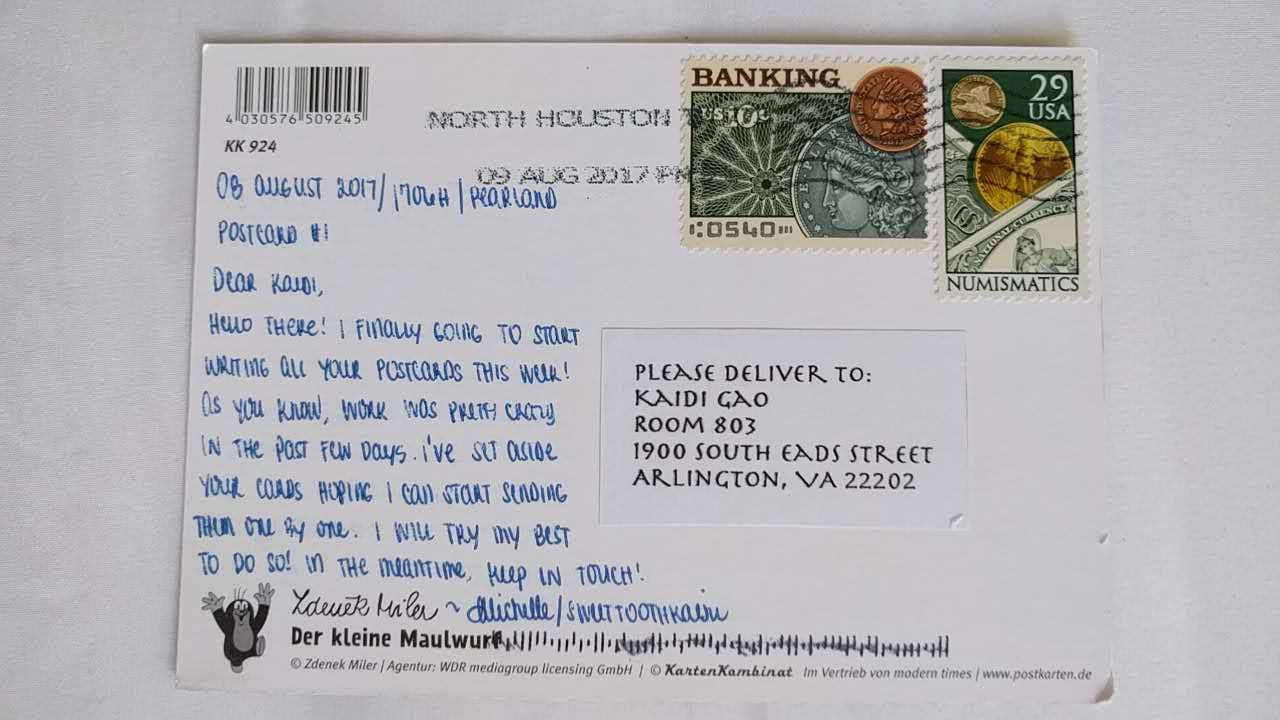 4 030576 509245
KK 924
NORTH HOUSTON T
09 AUG 2017 PM
BANKING
US 10c
⑆0540⑈
29
USA
NATIONAL CURRENCY
NUMISMATICS
08 AUGUST 2017/1706H/PEARLAND
POSTCARD #1
DEAR KAIDI,
HELLO THERE! I FINALLY GOING TO START
WRITING ALL YOUR POSTCARDS THIS WEEK!
AS YOU KNOW, WORK WAS PRETTY CRAZY
IN THE PAST FEW DAYS. I'VE SET ASIDE
YOUR CARDS HOPING I CAN START SENDING
THEM ONE BY ONE. I WILL TRY MY BEST
TO DO SO! IN THE MEANTIME, KEEP IN TOUCH!
~ Michelle/
PLEASE DELIVER TO:
KAIDI GAO
ROOM 803
1900 SOUTH EADS STREET
ARLINGTON, VA 22202
Zdenek Miler
Der kleine Maulwurf
© Zdenek Miler | Agentur: WDR mediagroup licensing GmbH | © KartenKombinat Im Vertrieb von modern times | www.postkarten.de